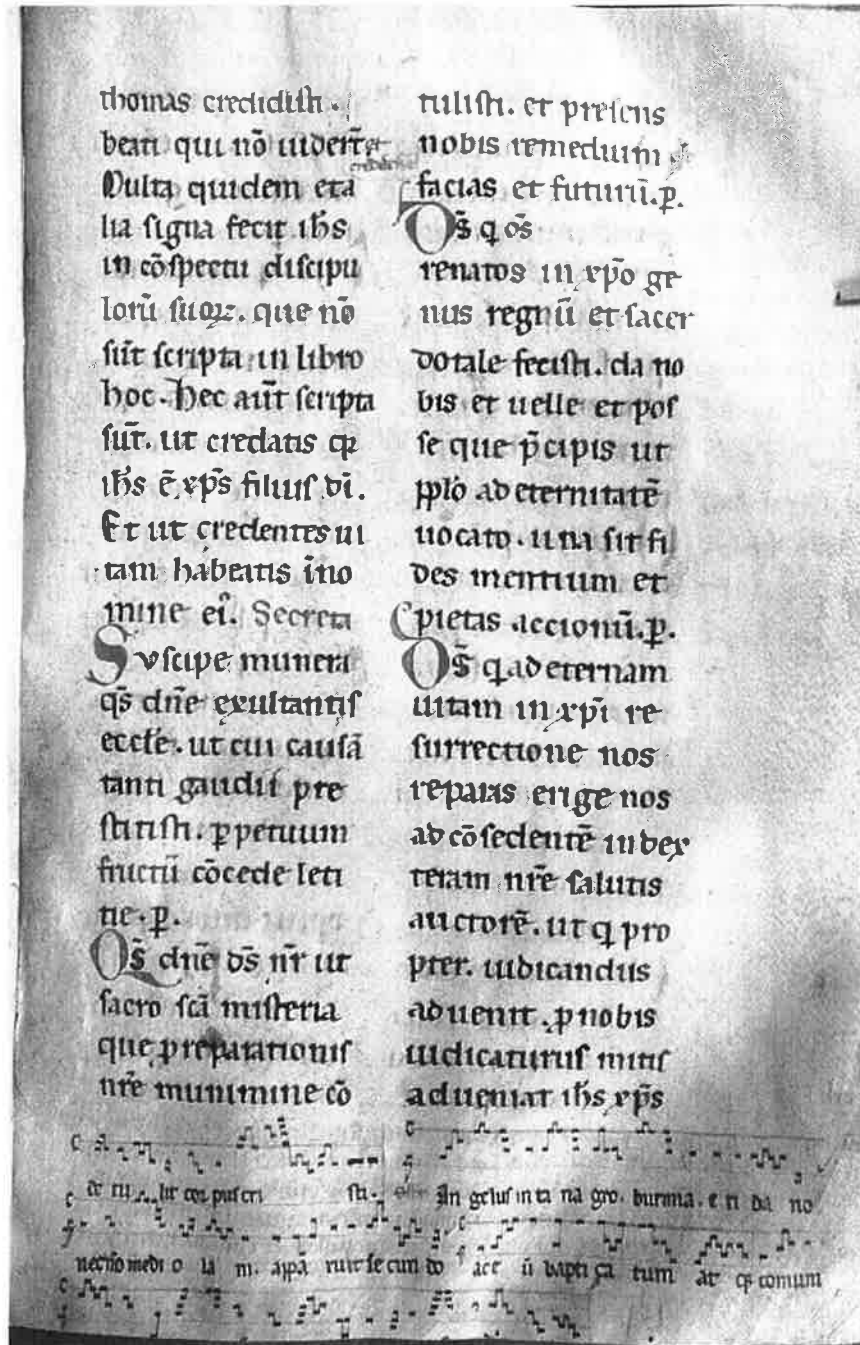 thomas credidisti.
beati qui nō uider̄t et
crediderūt
Multa quidem et a
lia signa fecit ihs̄
in cōspectu discipu
lorū suoꝝ. que nō
sūt scripta in libro
hoc. Hec aūt scripta
sūt. ut credatis qꝛ
ihs̄ ē xp̄s filius dī.
Et ut credentes ui
tam habeatis ī no
mine ei᷒. Secreta
Suscipe munera
qs̄ dn̄e exultantis
eccl̄e. ut cui causā
tanti gaudii pre
stitisti. ꝑpetuum
fructū cōcede leti
tie. p̄.
Qs̄ dn̄e ds̄ nr̄ ut
sacro scā misteria
que p reparationis
nr̄e munimine cō
tulisti. et presens
nobis remedium
facias et futurū. p̄.
Os̄ q os̄
renatos in xp̄o ge
nus regnū et sacer
dotale fecisti. da no
bis et uelle et pos
se que p̄cipis ut
pplo ad eternitatē
uocato. una sit fi
des mentium et
pietas accionū. p̄.
Os̄ q ad eternam
uitam in xp̄i re
surrectione nos
reparas erige nos
ad cōsedentē in dex
teram nr̄e salutis
auctorē. ut q pro
pter. iudicandus
aduenit. p nobis
iudicaturus mitis
adueniat ihs̄ xp̄s
corpus cri sti. An gelus in ta na gro. burima. e ti da no
medi o la ni. appā ruit se cun do acc ū bapti ça tum āt qs comum